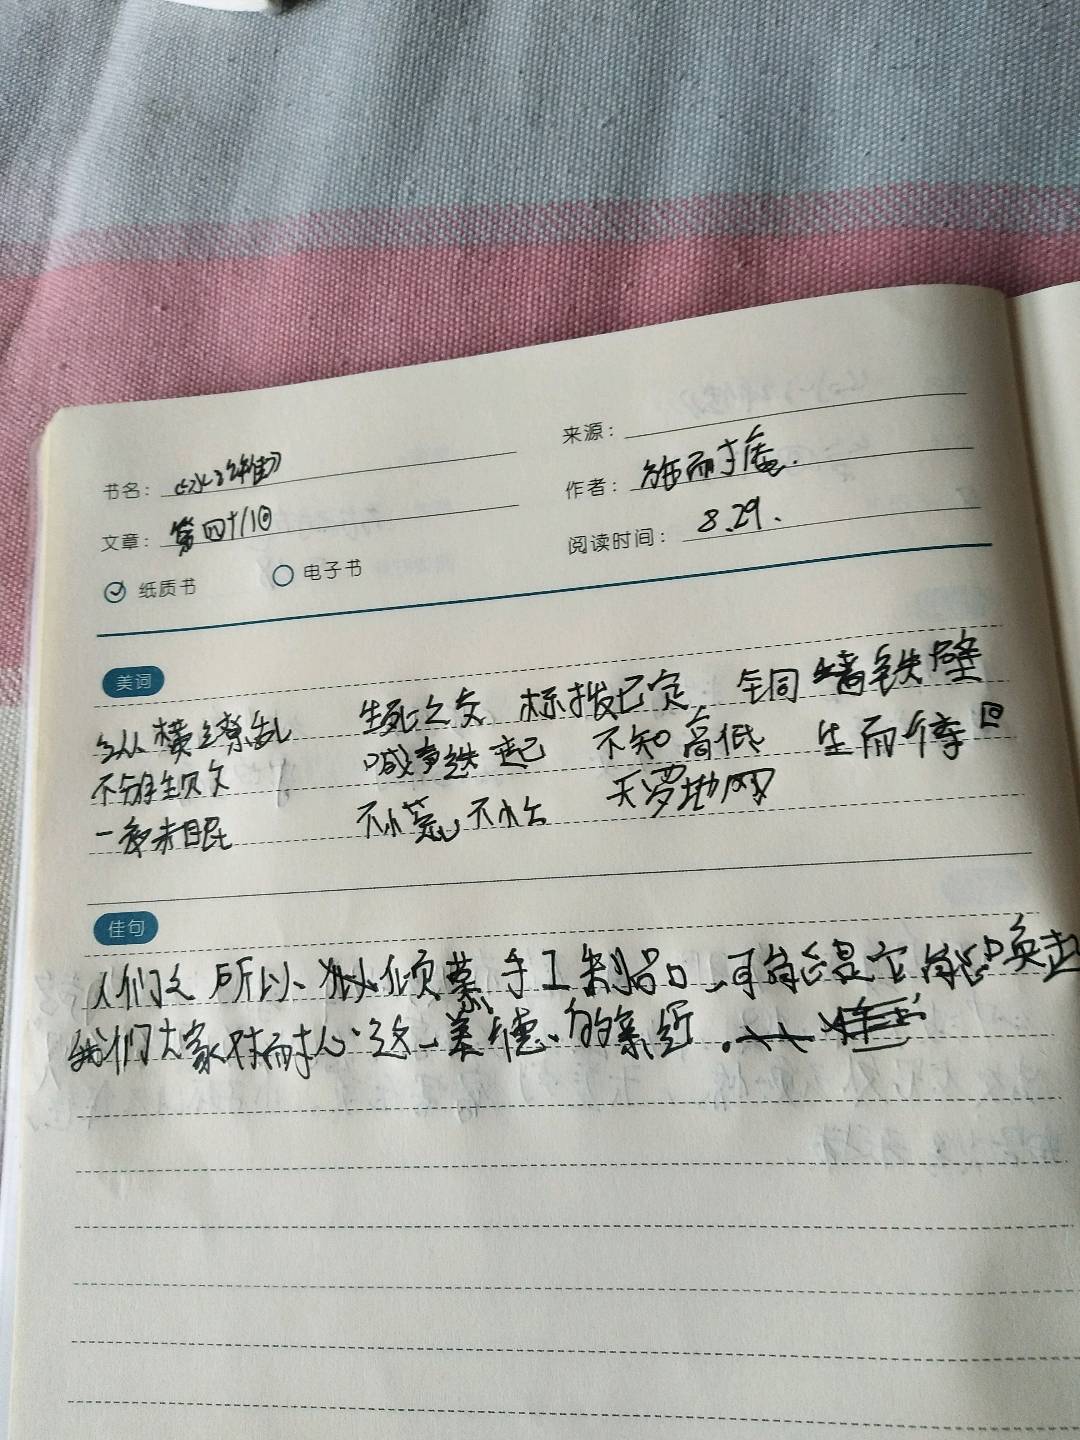 书名：《水浒传》
来源：
文章：第四十八回
作者：施耐庵.
纸质书 电子书
阅读时间：8.29.
美词
纵横缭乱 生死之交 标拨已定 铜墙铁壁
喊声 起 不知高低
一夜未眠 不慌不 天罗地网
佳句
人们之所以 倾慕手工制品，可能是它能唤起
我们大家对耐心这一美德的亲近.